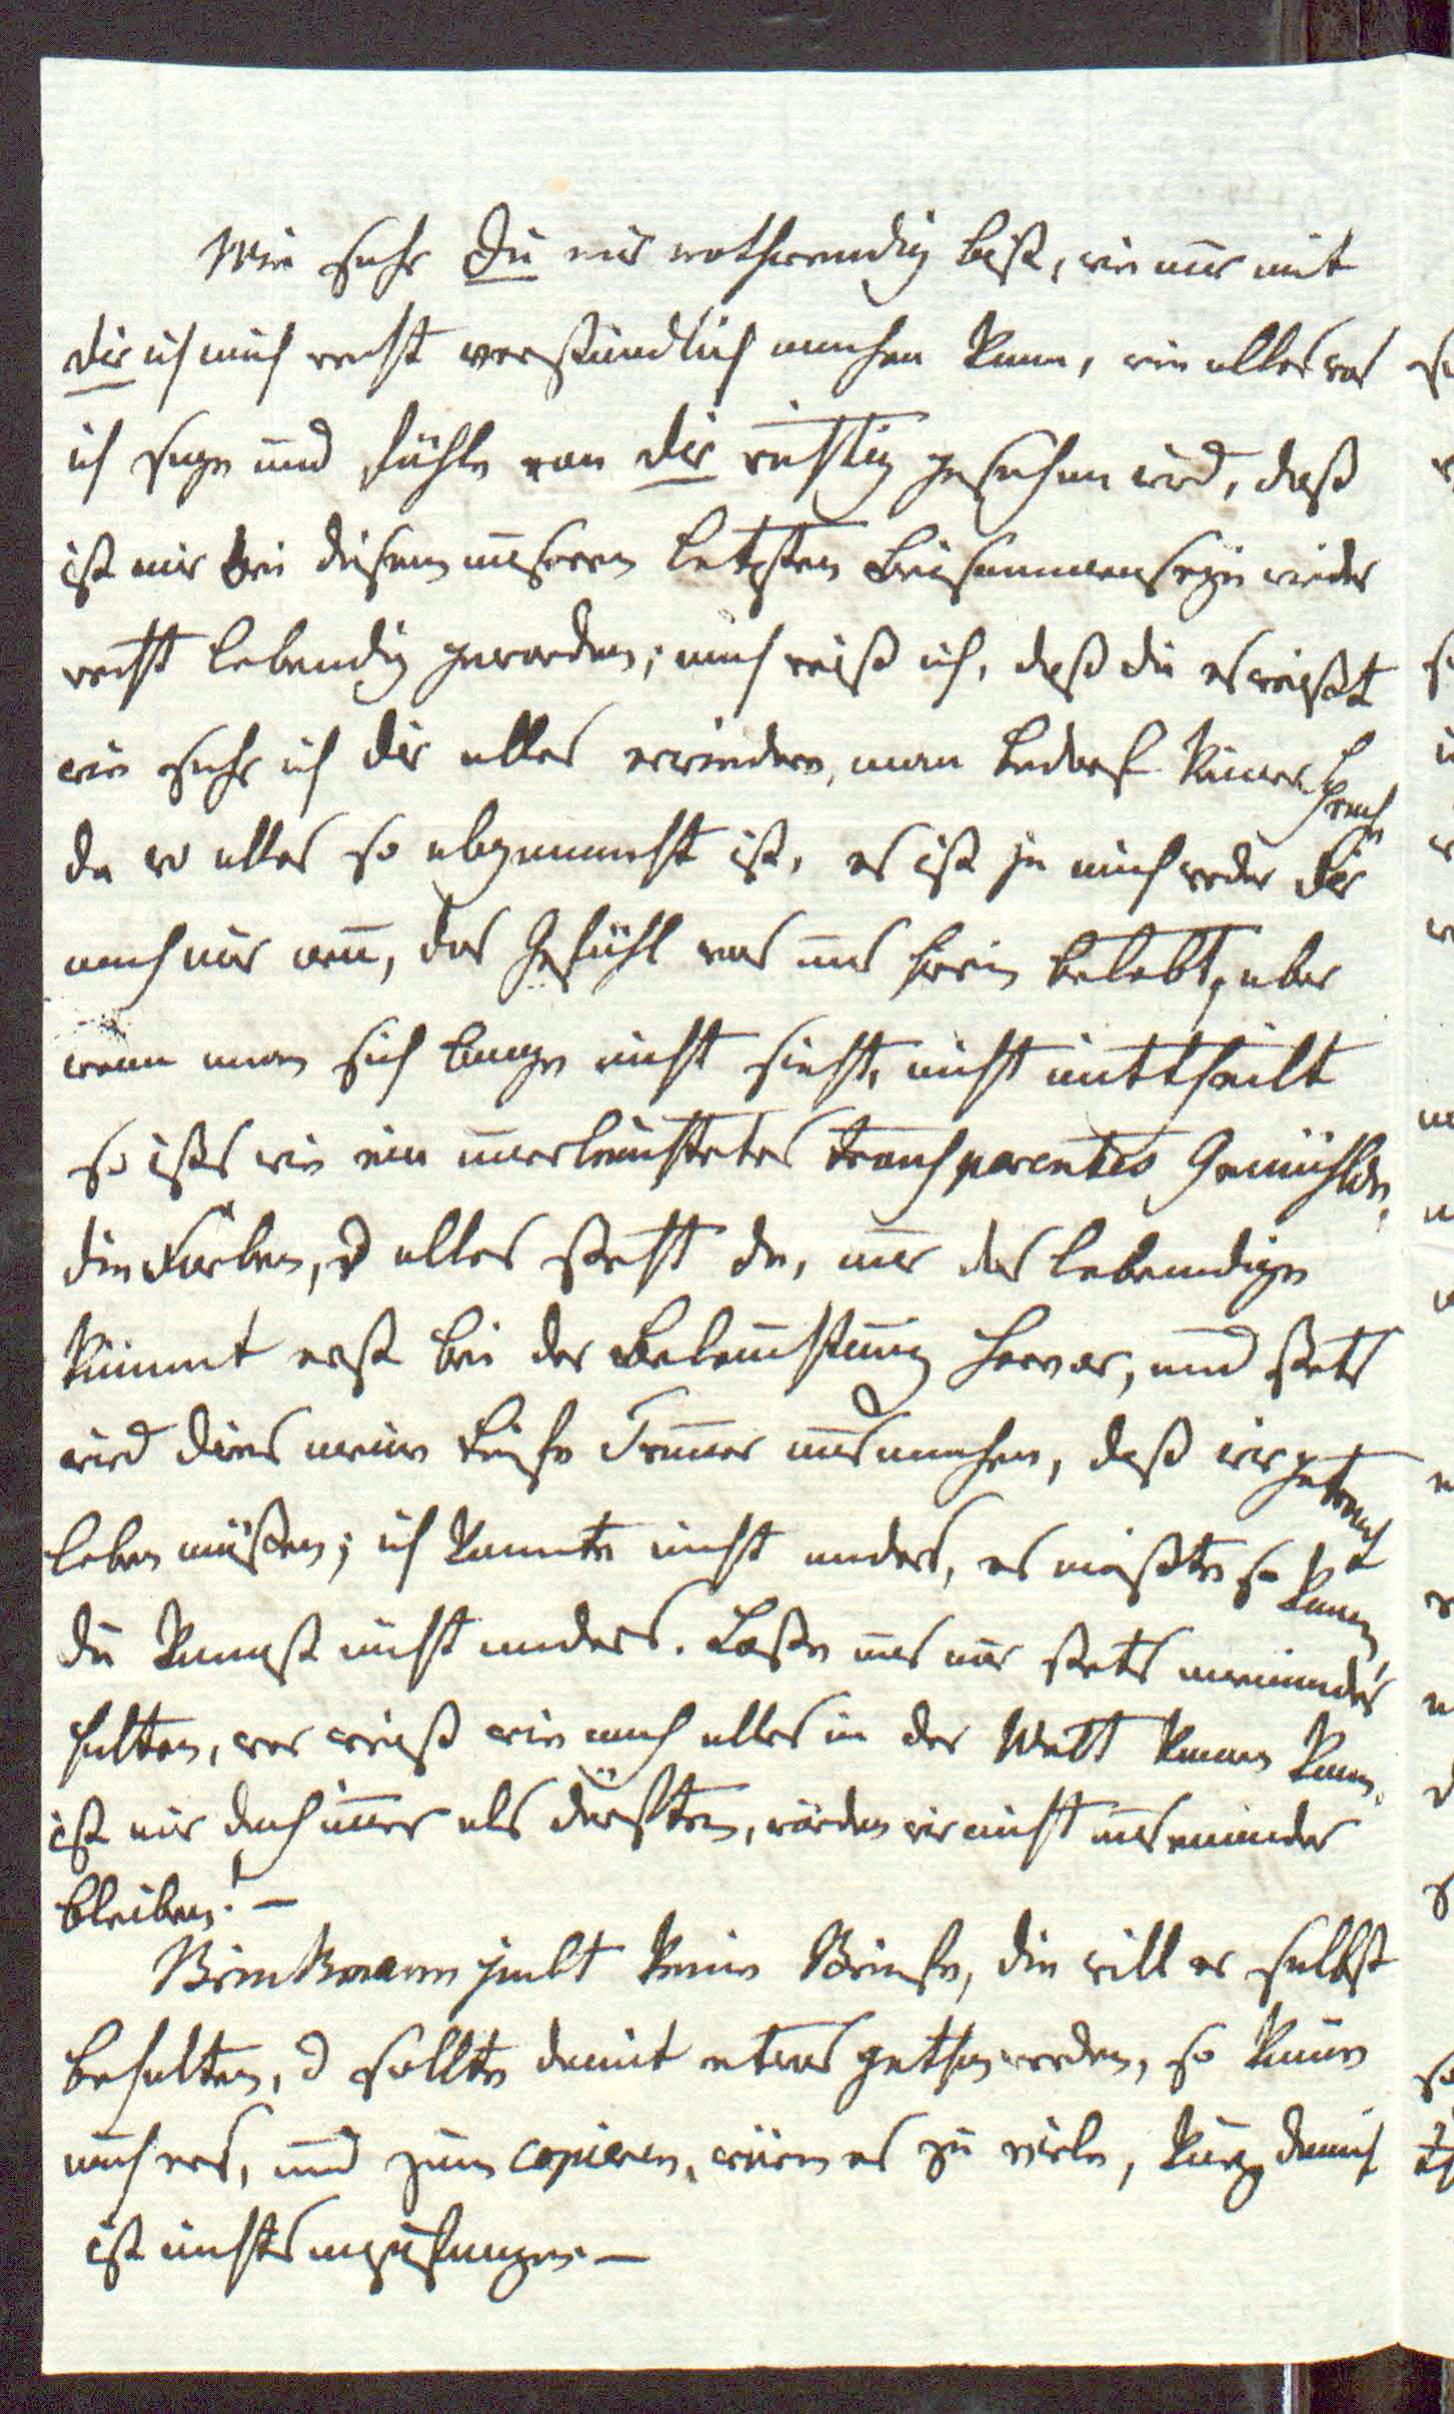 Wie sehr Du mir nothwendig bist, wie nur mit
Dir ich mich recht verständlich machen kann, wie alles was
ich sage und fühle von Dir richtig gesehen wird, daß
ist mir bei diesem unserm letzten Beisammenseyn wieder
recht lebendig geworden; auch weiß ich, daß du es weißt
wie sehr ich dir alles erwiedere, man bedarf keiner Sprache
da wo alles so abgemacht ist, es ist ja auch weder Dir
noch mir neu, das Gefühl was uns hierin belebt, aber
wenn man sich lange nicht sieht, nicht mittheilt
so ists wie ein unerleuchtetes transparentes Gemählde,
die Farben, d alles steht da, nur das lebendige
kömmt erst bei der Beleuchtung hervor, und stets
wird dies meine tiefe Trauer ausmachen, daß wir getrennt
leben müßen; ich konnte nicht anders, es mußte so kommen,
du kannst nicht anders. Laße uns nur stets aneinander
halten, wer weiß wie noch alles in der Welt kommen kann,
ist mir doch immer als dürften, würden wir nicht auseinander
bleiben! –
Brinkmann giebt keine Briefe, die will er selbst
behalten, d sollte damit etwas gethan werden, so käme
auch er, und zum copieren, wären es zu viele, kurz damit
ist nichts anzufangen. –